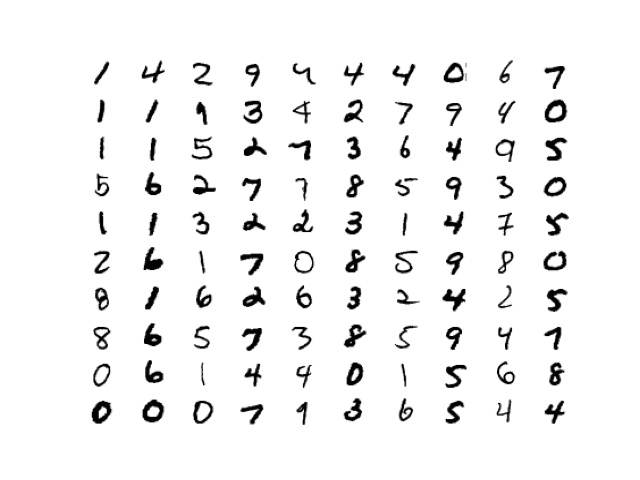 1 4 2 9 4 4 4 0 6 7
1 1 9 3 4 2 7 9 4 0
1 1 5 2 7 3 6 4 9 5
5 6 2 7 7 8 5 9 3 0
1 1 3 2 2 3 1 4 7 5
2 6 1 7 0 8 5 9 8 0
8 1 6 2 6 3 2 4 2 5
8 6 5 7 3 8 5 9 4 7
0 6 1 4 4 0 1 5 6 8
0 0 0 7 1 3 6 5 4 4